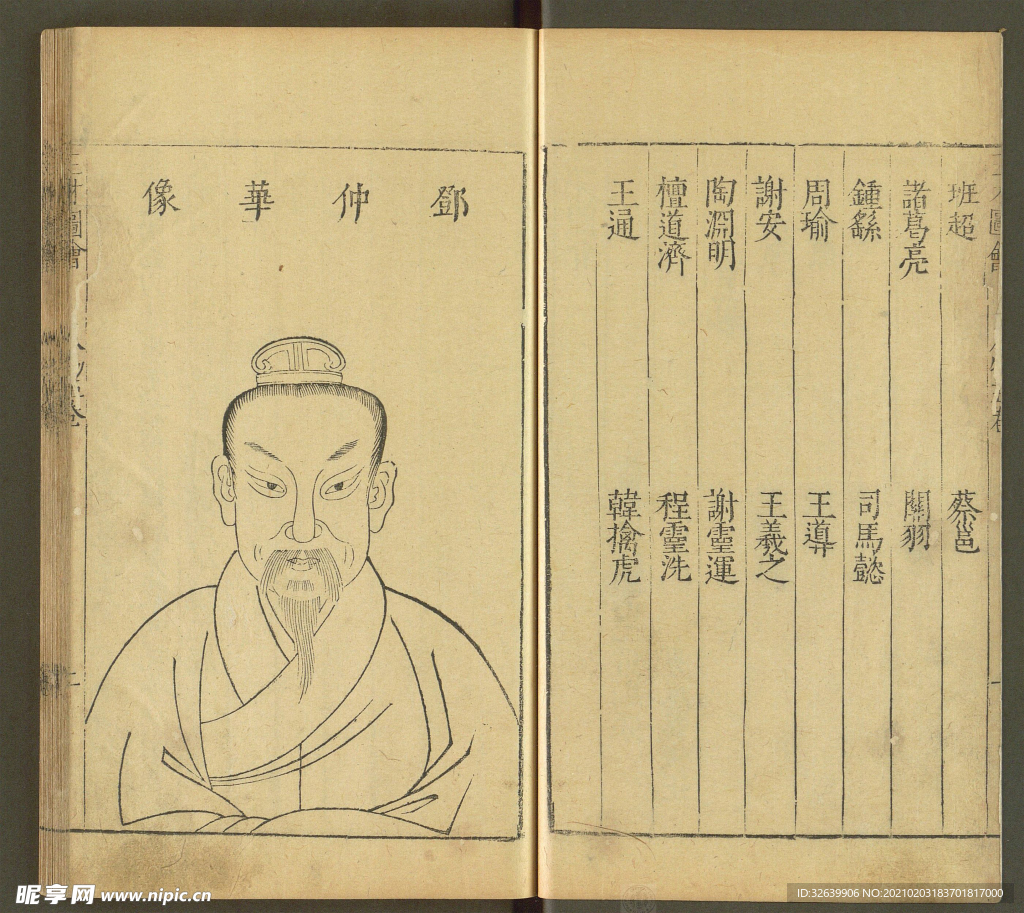 班超
蔡邕
諸葛亮
關羽
鍾繇
司馬懿
周瑜
王導
謝安
王羲之
陶淵明
謝靈運
檀道濟
程靈洗
王通
韓擒虎
鄧仲華像
圖會
昵享网 www.nipic.cn
ID:32639906 NO:20210203183701817000